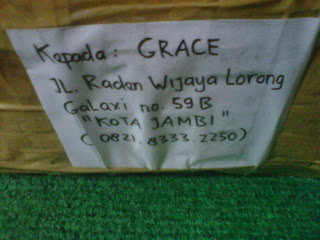 Kepada : GRACE
JL. Raden Wijaya Lorong
Galaxi no. 59B
"KOTA JAMBI"
( 0821. 8333. 2250)